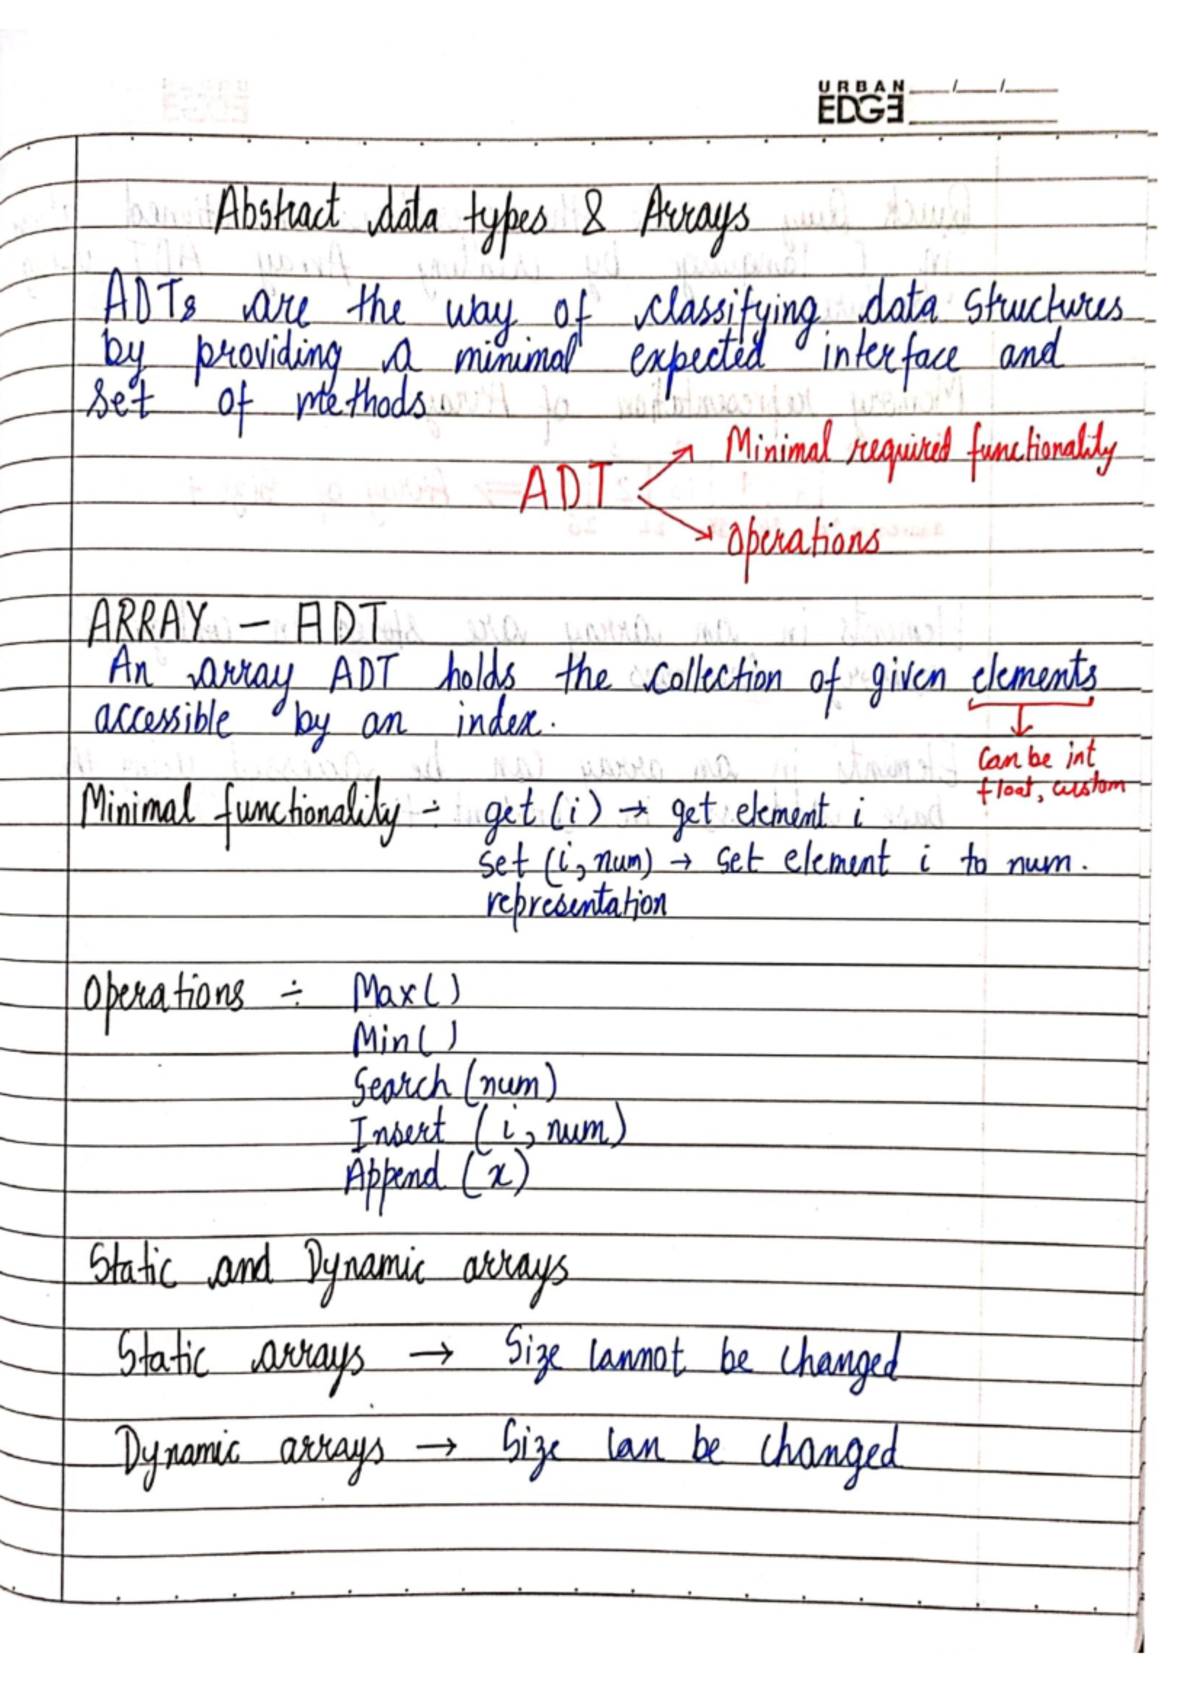 URBAN
EDGE
Abstract data types & Arrays
ADTs are the way of classifying data structures
by providing a minimal expected interface and
set of methods.
ADT
Minimal required functionality
Operations
ARRAY - ADT
An array ADT holds the collection of given elements
accessible by an index.
Can be int
float, custom
Minimal functionality ÷ get (i) → get element i
set (i, num) → set element i to num.
representation
Operations ÷ Max()
Min()
Search (num)
Insert (i, num)
Append (x)
Static and Dynamic arrays
Static arrays → Size cannot be changed
Dynamic arrays → Size can be changed